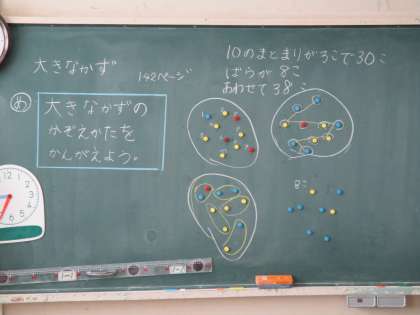 大きなかず
142ページ
め
大きなかずの
かぞえかたを
かんがえよう。
10のまとまりが3こで30こ
ばらが8こ
あわせて38こ
8こ
12